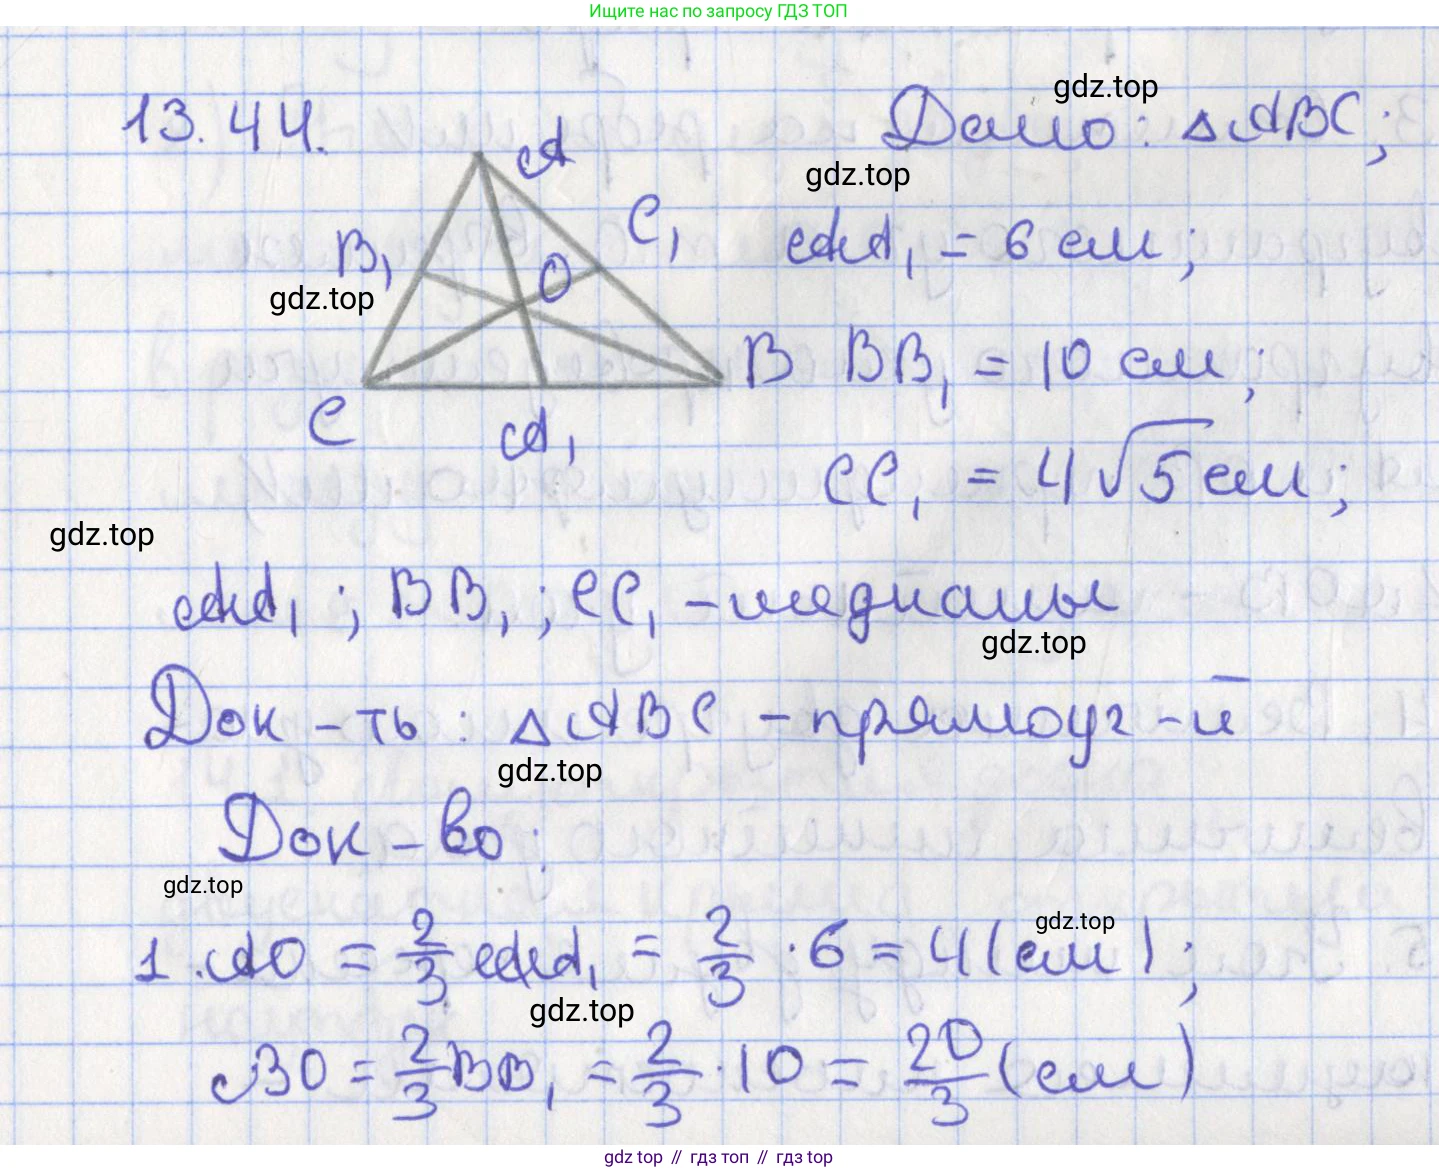 Ищите нас по запросу ГДЗ ТОП
gdz.top
13.44. Дано: △ABC;
gdz.top
A
C₁ AA₁ = 6 см;
B₁ O
gdz.top
B BB₁ = 10 см;
C A₁
CC₁ = 4√5 см;
gdz.top
AA₁; BB₁; CC₁ – медианы
gdz.top
Док-ть: △ABC – прямоуг-й
gdz.top
Док-во:
gdz.top
gdz.top
1. AO = 2/3 AA₁ = 2/3 · 6 = 4 (см);
gdz.top
BO = 2/3 BB₁ = 2/3 · 10 = 20/3 (см)
gdz top // гдз топ // гдз top